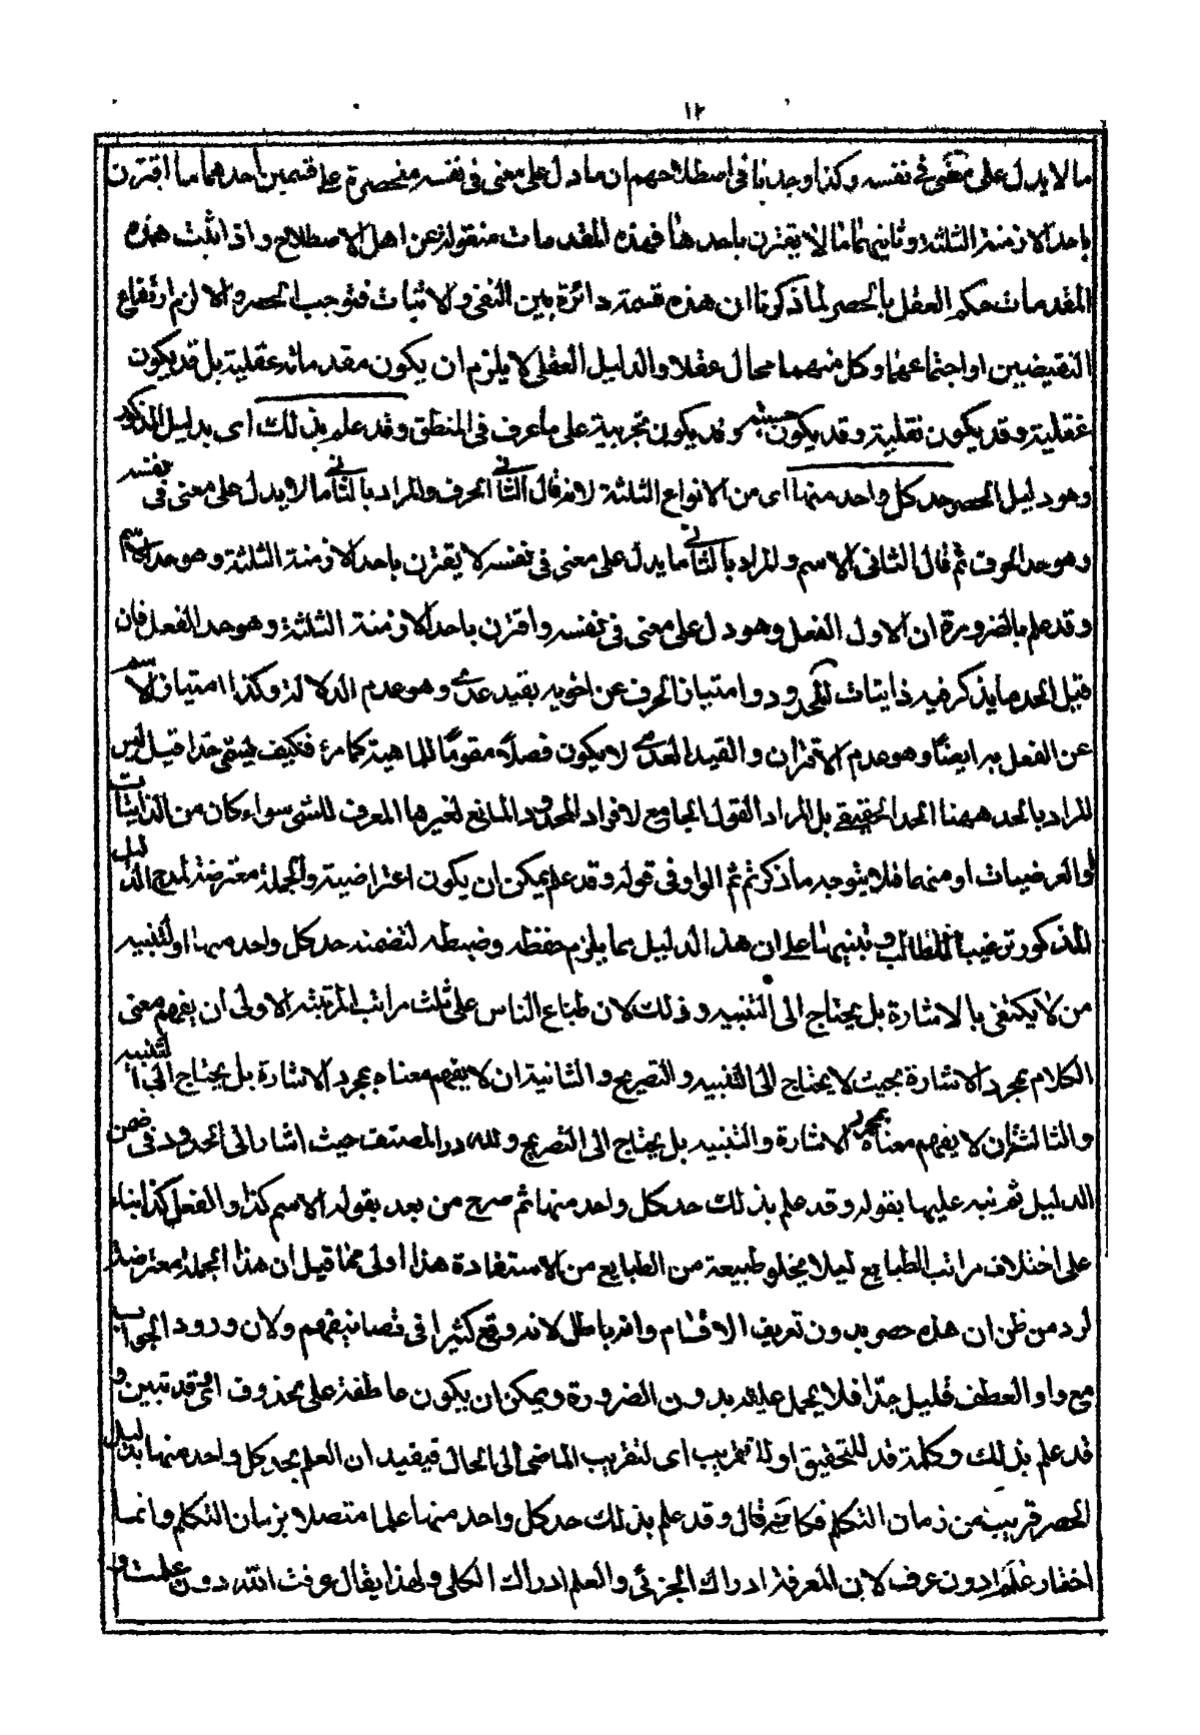 ١٢
ما لا يدل على معنى فى نفسه وكذا وجدنا فى اصطلاحهم ان ما دل على معنى فى نفسه منحصرة على قسمين احدهما ما اقترن
باحد الازمنة الثلثة وثانيهما ما لا يقترن باحدها فهذه المقدمات منقولة عن اهل الاصطلاح واذا ثبت هذه
المقدمات حكم العقل بالحصر لما ذكرنا ان هذه قسمة دائرة بين النفى والاثبات فتوجب الحصر والا لزم ارتفاع
النقيضين او اجتماعهما وكل منهما محال عقلا والدليل العقلى لا يلزم ان يكون مقدماته عقلية بل قد يكون
عقلية وقد يكون نقلية وقد يكون حسية وقد يكون تجربية على ما عرف فى المنطق وقد علم بذلك اى بدليل المذكور
وهو دليل الحصر حد كل واحد منها اى من الانواع الثلثة لانه قال الثانى الحرف والمراد بالثانى ما لا يدل على معنى فى نفسه
وهو حد الحرف ثم قال الثانى الاسم والمراد بالثانى ما يدل على معنى فى نفسه لا يقترن باحد الازمنة الثلثة وهو حد الاسم
وقد علم بالضرورة ان الاول الفعل وهو دل على معنى فى نفسه واقترن باحد الازمنة الثلثة وهو حد الفعل فان
قيل الحد ما يذكر فيه ذاتيات المحدود وامتياز الحرف عن اخويه بقيد عدمى وهو عدم الدلالة وكذا امتياز الاسم
عن الفعل به ايضا وهو عدم الاقتران والقيد العدمى لا يكون فصلا مقوما للماهية كما مر فكيف يسمى حدا قيل ليس
المراد بالحد ههنا الحد الحقيقى بل المراد القول الجامع لافراد المحدود المانع لغيرها المعرف للشئ سواء كان من الذاتيات
والعرضيات او منهما فلا يتوجه ما ذكرتم ثم الواو فى قوله وقد علم يمكن ان يكون اعتراضية والجملة معترضة لمدح الدليل
المذكور ترغيبا للطالب وتنبيها على ان هذا الدليل مما يلزم حفظه وضبطه لتضمنه حد كل واحد منها او لتنبيه
من لا يكتفى بالاشارة بل يحتاج الى التنبيه وذلك لان طباع الناس على ثلث مراتب المرتبة الاولى ان يفهم معنى
الكلام بمجرد الاشارة بحيث لا يحتاج الى التنبيه والتصريح والثانية ان لا يفهم معناه بمجرد الاشارة بل يحتاج الى التنبيه
والثالثة ان لا يفهم معناه بمجرد الاشارة والتنبيه بل يحتاج الى التصريح ولله در المصنف حيث اشار الى الحدود فى ضمن
الدليل ثم نبه عليها بقوله وقد علم بذلك حد كل واحد منها ثم صرح من بعد بقوله الاسم كذا والفعل كذا بناء
على اختلاف مراتب الطبايع ليلا يخلو طبيعة من الطبايع من الاستفادة هذا اولى مما قيل ان هذا الجملة معترضة
لرد من ظن ان هذه حصر بدون تعريف الاقسام وانه باطل لانه وقع كثيرا فى تصانيفهم ولان ورود الجواب
مع واو العطف قليل جدا فلا يحمل عليه بدون الضرورة ويمكن ان يكون عاطفة على محذوف اى قد تبين و
قد علم بذلك وكلمة قد للتحقيق او للتقريب اى لتقريب الماضى الى الحال فيفيد ان العلم بحد كل واحد منها بدليل
الحصر قريب من زمان التكلم فكانه قال وقد علم بذلك حد كل واحد منها علما متصلا بزمان التكلم وانما
اختار علم دون عرف لان المعرفة ادراك الجزئى والعلم ادراك الكلى ولهذا يقال عرفت الله دون علمت و